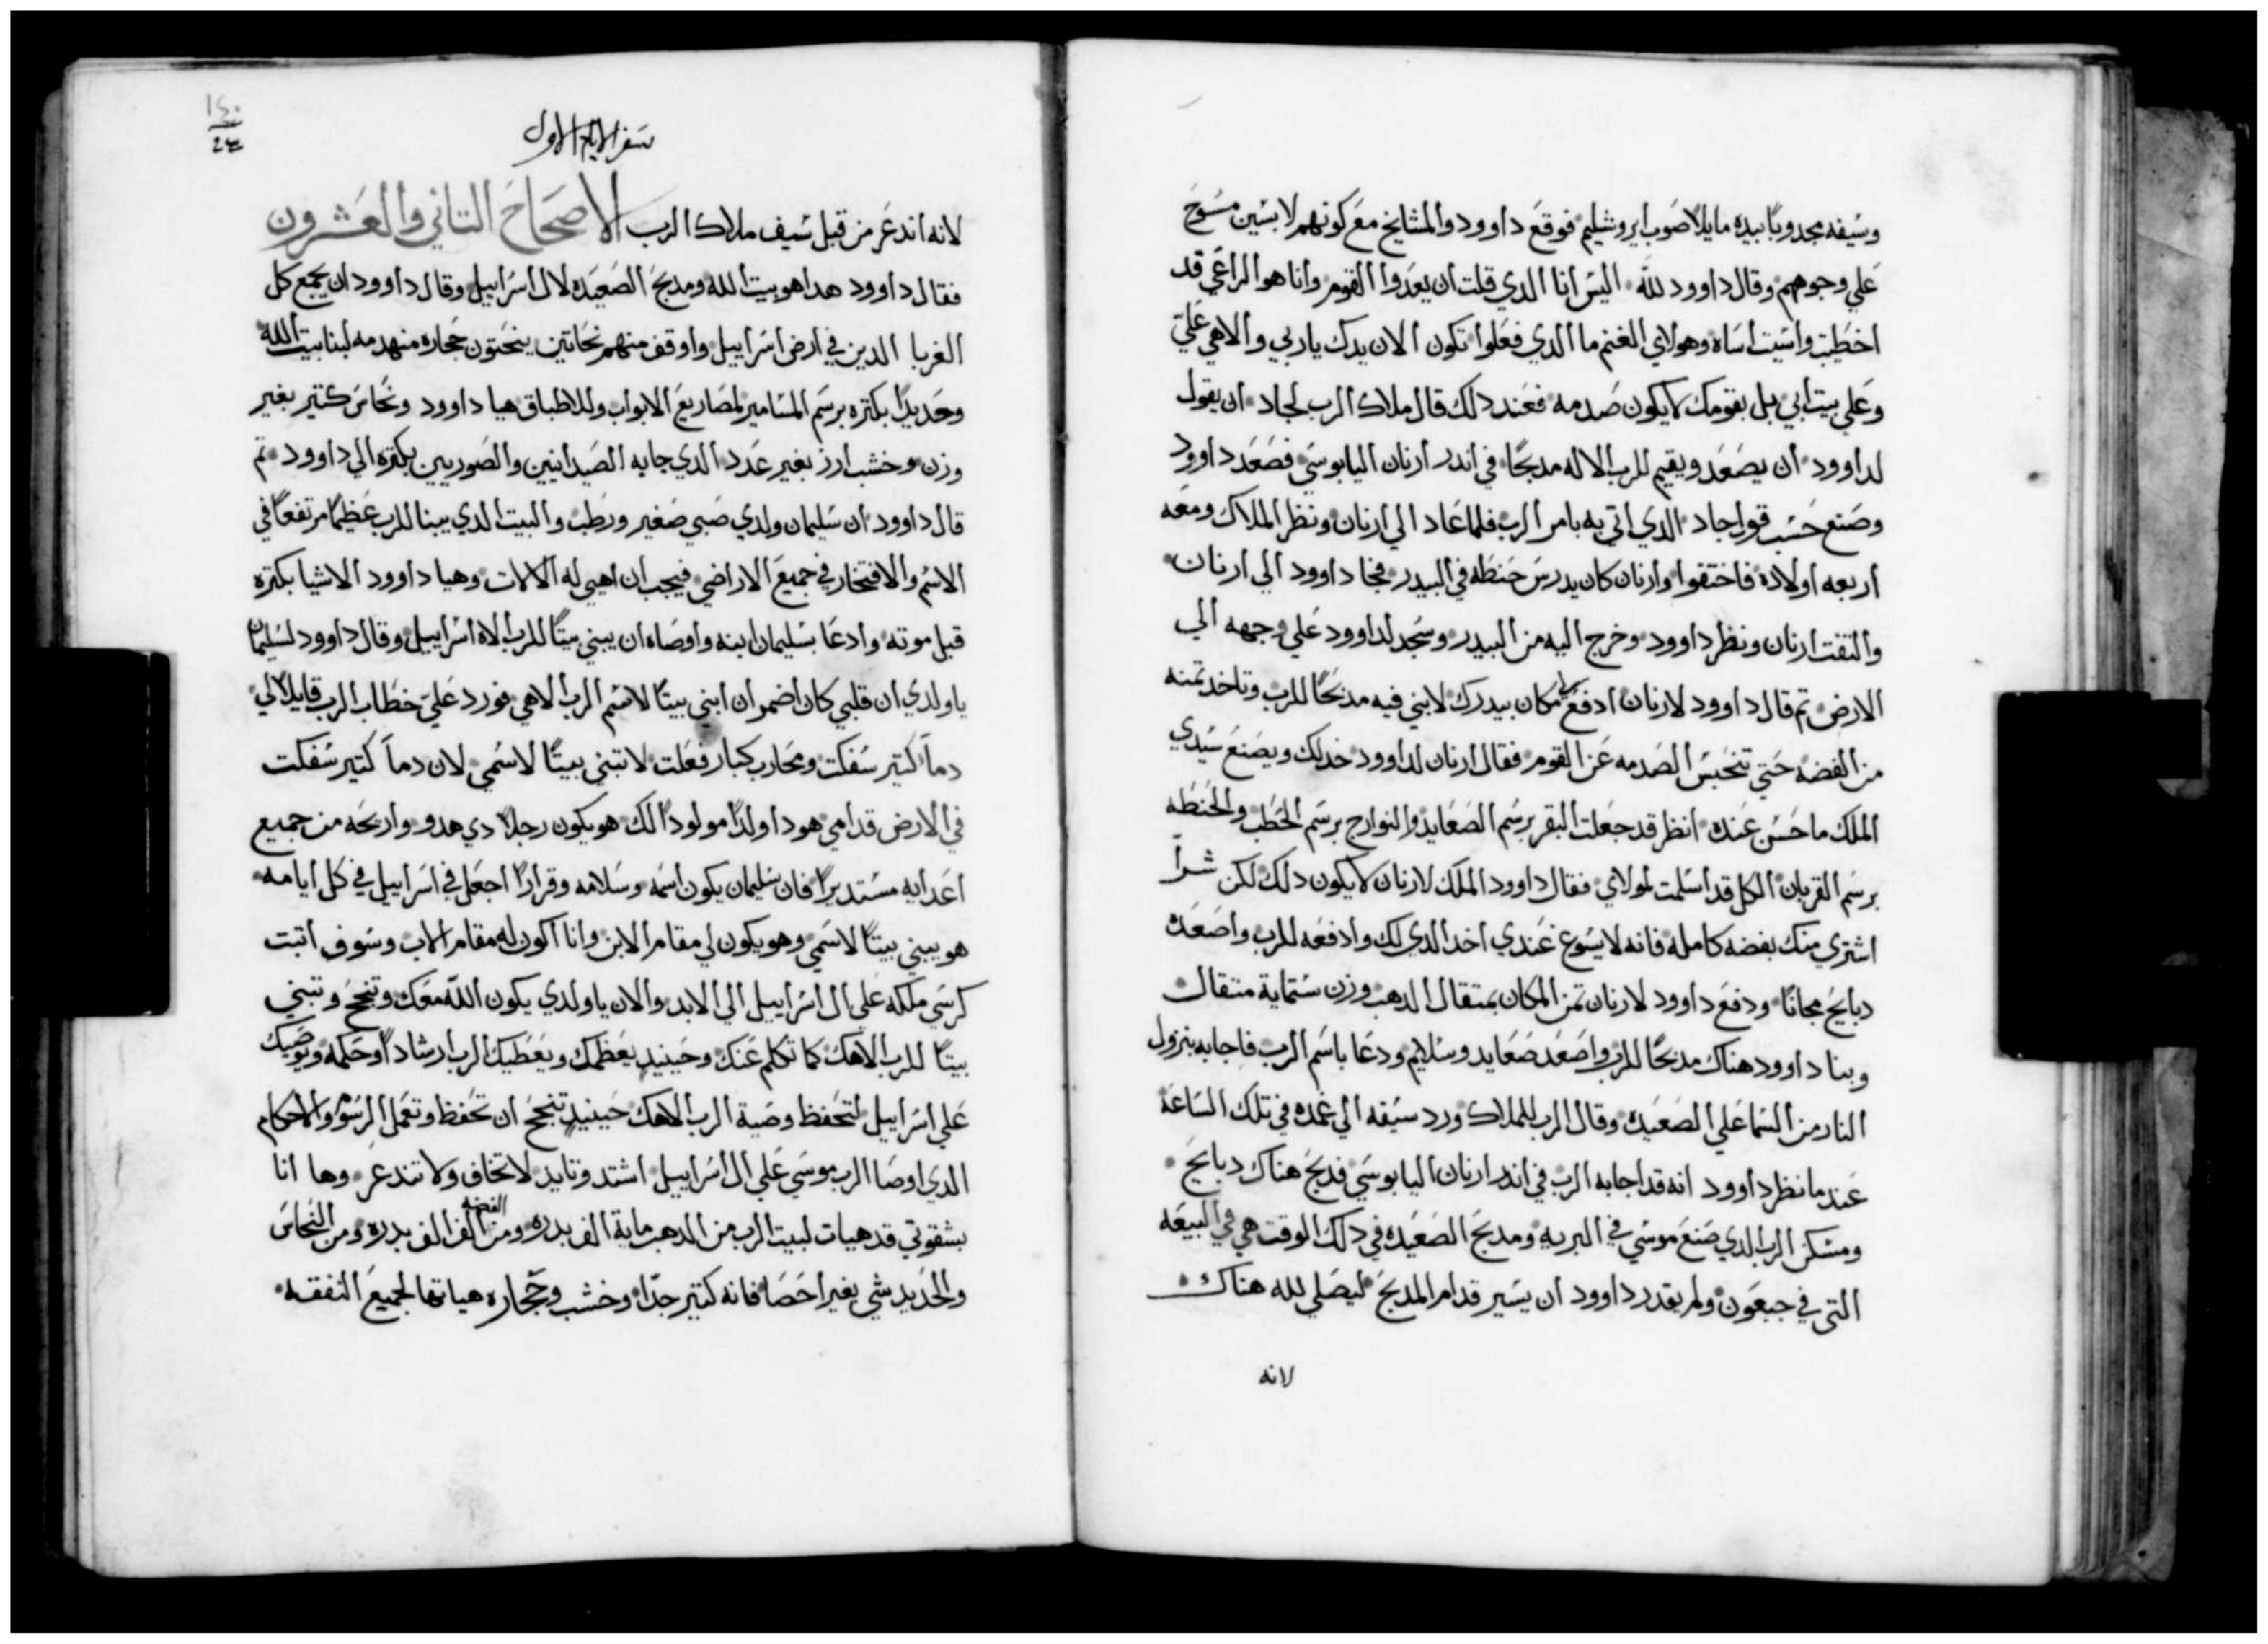 وسيفه مجدوبًا بيده مايلًا صوب ايروشليم فوقع داوود والمشايخ مع كونهم لابسين مسوح
علي وجوههم وقال داوود لله اليس انا الدي قلت ان يعدوا القوم وانا هو الراعي قد
اخطيت واسيت اساه وهولاي الغنم ما الدي فعلوا تكون الان يدك ياربي والاهي عليّ
وعلي بيت ابي بل بقومك لا يكون صدمه فعند دلك قال ملاك الرب لجاد ان يقول
لداوود ان يصعد ويقيم للرب الاله مدبحًا في اندر ارنان اليابوسي فصعد داوود
وصنع حسب قول جاد الدي اتي به بامر الرب فلما عاد الي ارنان ونظر الملاك ومعه
اربعه اولاده فاختفوا وارنان كان يدرس حنطه في البيدر فجا داوود الي ارنان
والتفت ارنان ونظر داوود وخرج اليه من البيدر وسجد لداوود علي وجهه الي
الارض تم قال داوود لارنان ادفع لي مكان بيدرك لابني فيه مدبحًا للرب وتاخد تمنه
من الفضه حتي تنحبس الصدمه عن القوم فقال ارنان لداوود خد لك ويصنع سيدي
الملك ما حسن عنده انظر قد جعلت البقر برسم الصعايد والنوارج برسم الحطب والحنطه
برسم القربان الكل قد اسلمت لمولاي فقال داوود الملك لارنان لا يكون دلك لكن شراً
اشتري منك بفضه كامله فانه لا يسوع عندي اخد الدي لك وادفعه للرب واصعده
دبايح مجانًا ودفع داوود لارنان تمن المكان بمتقال الدهب وزن ستماية متقال
وبنا داوود هناك مدبحًا للرب واصعد صعايد وسلايم ودعا باسم الرب فاجابه بنزول
النار من السما علي الصعيده وقال الرب للملاك ورد سيفه الي غمده في تلك الساعه
عندما نظر داوود انه قد اجابه الرب في اندر ارنان اليابوسي فدبح هناك دبايح
ومسكن الرب الدي صنع موسي في البريه ومدبح الصعيده في دلك الوقت هي في البيعه
التي في جبعون ولم يقدر داوود ان يسير قدام المدبح ليصلي لله هناك
لانه
سفر الايام الاول
لانه اندعر من قبل سيف ملاك الرب الاصحاح التاني والعشرون
فقال داوود هدا هو بيت الله ومدبح الصعيده لال اسراييل وقال داوود ان يجمع كل
الغربا الدين في ارض اسراييل واوقف منهم نحاتين ينحتون حجاره منهدمه لبنا بيت الله
وحديدًا بكتره برسم المسامير لمصاريع الابواب وللاطباق هيا داوود ونحاس كتير بغير
وزن وخشب ارز بغير عدد الدي جابه الصيدانيين والصوريين بكتره الي داوود تم
قال داوود ان سليمان ولدي صبي صغير ورطب والبيت الدي يبنا للرب عظيمًا مرتفعًا في
الاسم والافتخار في جميع الاراضي فيجب ان اهيي له الالات وهيا داوود الاشيا بكتره
قبل موته وادعا بسليمان ابنه واوصاه ان يبني بيتًا للرب الاه اسراييل وقال داوود لسليمان
ياولدي ان قلبي كان اضمر ان ابني بيتًا لاسم الرب الاهي فورد عليّ خطاب الرب قايلًا لي
دماً كتير سفكت ومحارب كبار فعلت لا تبني بيتًا لاسمي لان دماً كتير سفكت
في الارض قدامي هودا ولدًا مولودًا لك هو يكون رجلًا دي هدو واريحه من جميع
اعدايه مستديرًا فان سليمان يكون اسمه وسلامه وقرارًا اجعل في اسراييل في كل ايامه
هو يبني بيتًا لاسمي وهو يكون لي مقام الابن وانا اكون له مقام الاب وسوف اتبت
كرسي ملكه علي ال اسراييل الي الابد والان ياولدي يكون الله معك وتنجح وتبني
بيتًا للرب الاهك كما تكلم عنك وحينيد يعظمك ويعطيك الرب ارشادًا وحكمه ويوصيك
علي اسراييل لتحفظ وصية الرب الاهك حينيد تنجح ان تحفظ وتعمل الرسوم والاحكام
الدي اوصا الرب موسي علي ال اسراييل اشتد وتايد لا تخاف ولا تندعر وها انا
بشقوتي قد هيات لبيت الرب من الدهب ماية الف بدره ومن الفضه الف الف بدره ومن النحاس
والحديد شي بغير احصا فانه كتير جدًا وخشب وحجاره هياتها لجميع النفقه